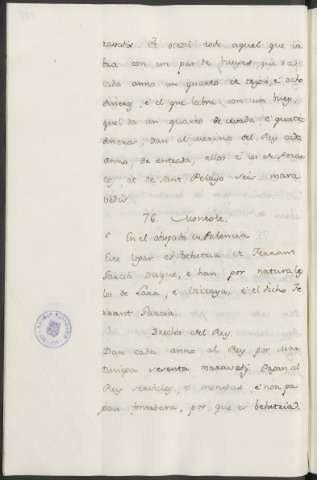 cevada. È otrosi todo aquel que la
bra con un par de bueyes, quel da
cada anno un quarto de trigo, è ocho
dineros, è el que labra con un buey,
quel da un quarto de cevada, è quatro
dineros, dan al merino del Rey cada
anno, de entrada, ellos è los de
de Sant Pelayo seis mara
vedis.
76. Monzote.
En el obispado de Palencia
Este logar es behetria de Ferrant
Garcia Duque, è han por naturales
los de Lara, è Vizcaya, è el dicho Fe
rrant Garcia.
Derechos del Rey
Dan cada anno al Rey por
tiniega sesenta maravedis. Pagan al
Rey servicios, è monedas, è non pa
gan fonsadera, por que es behetria.